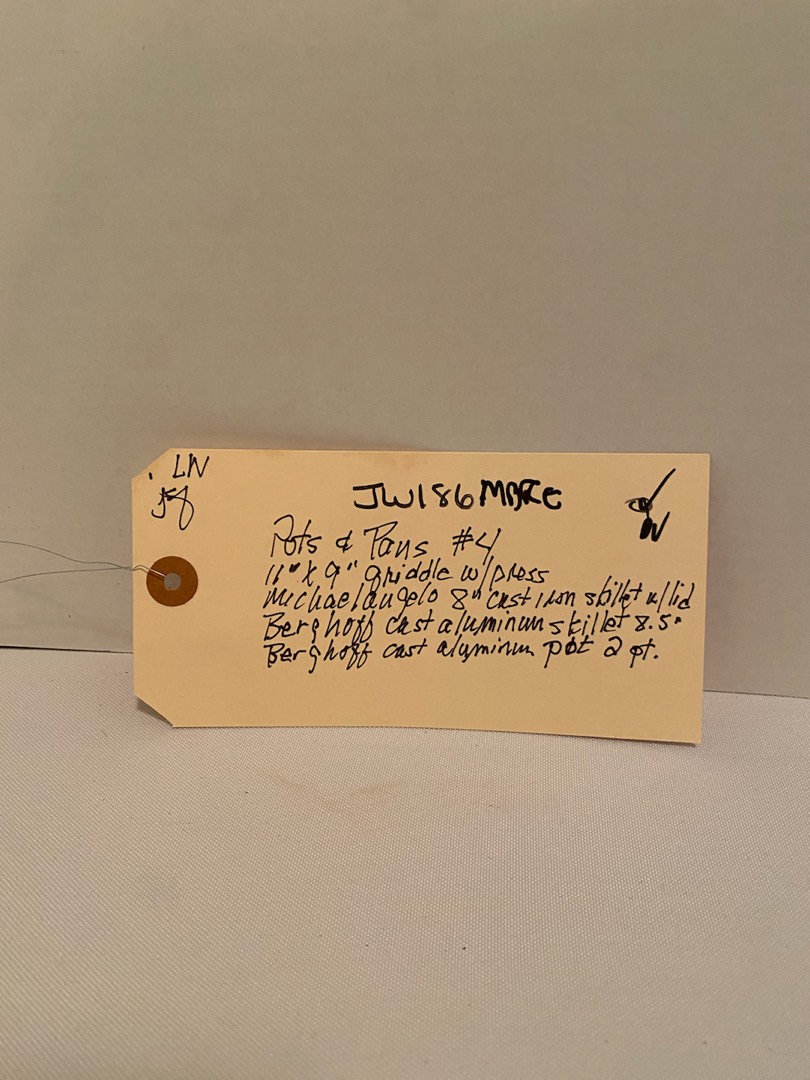 LW
JW186
Pots & Pans #4
11" X 9" griddle w/press
Michaelangelo 8" cast iron skillet w/lid
Berghoff cast aluminum skillet 8.5"
Berghoff cast aluminum pot 2 qt.